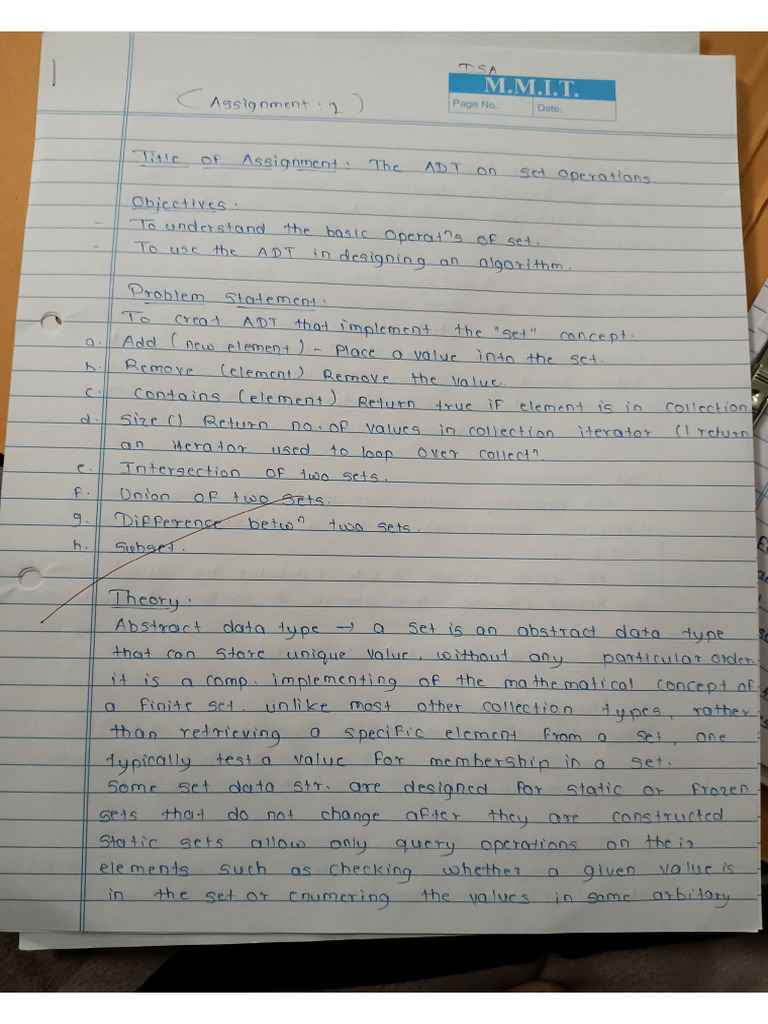 1
DSA
M.M.I.T.
Page No.: Date:
( Assignment : 2 )
Title of Assignment : The ADT on set operations
Objectives :
- To understand the basic operatⁿs of set.
- To use the ADT in designing an algorithm.
Problem Statement :
To creat ADT that implement the "set" concept.
a. Add (new element) - Place a value into the set.
b. Remove (element) Remove the value.
c. Contains (element) Return true if element is in collection
d. Size () Return no. of values in collection iterator () return
an iterator used to loop over collectⁿ.
e. Intersection of two sets.
f. Union of two sets.
g. Difference betwⁿ two sets.
h. Subset.
Theory :
Abstract data type → a set is an abstract data type
that can store unique value, without any particular order
it is a comp. implementing of the mathematical concept of
a finite set. unlike most other collection types, rather
than retrieving a specific element from a set, one
typically test a value for membership in a set.
Some set data str. are designed for static or frozen
sets that do not change after they are constructed
Static sets allow only query operations on their
elements such as checking whether a given value is
in the set or enumering the values in some arbitary